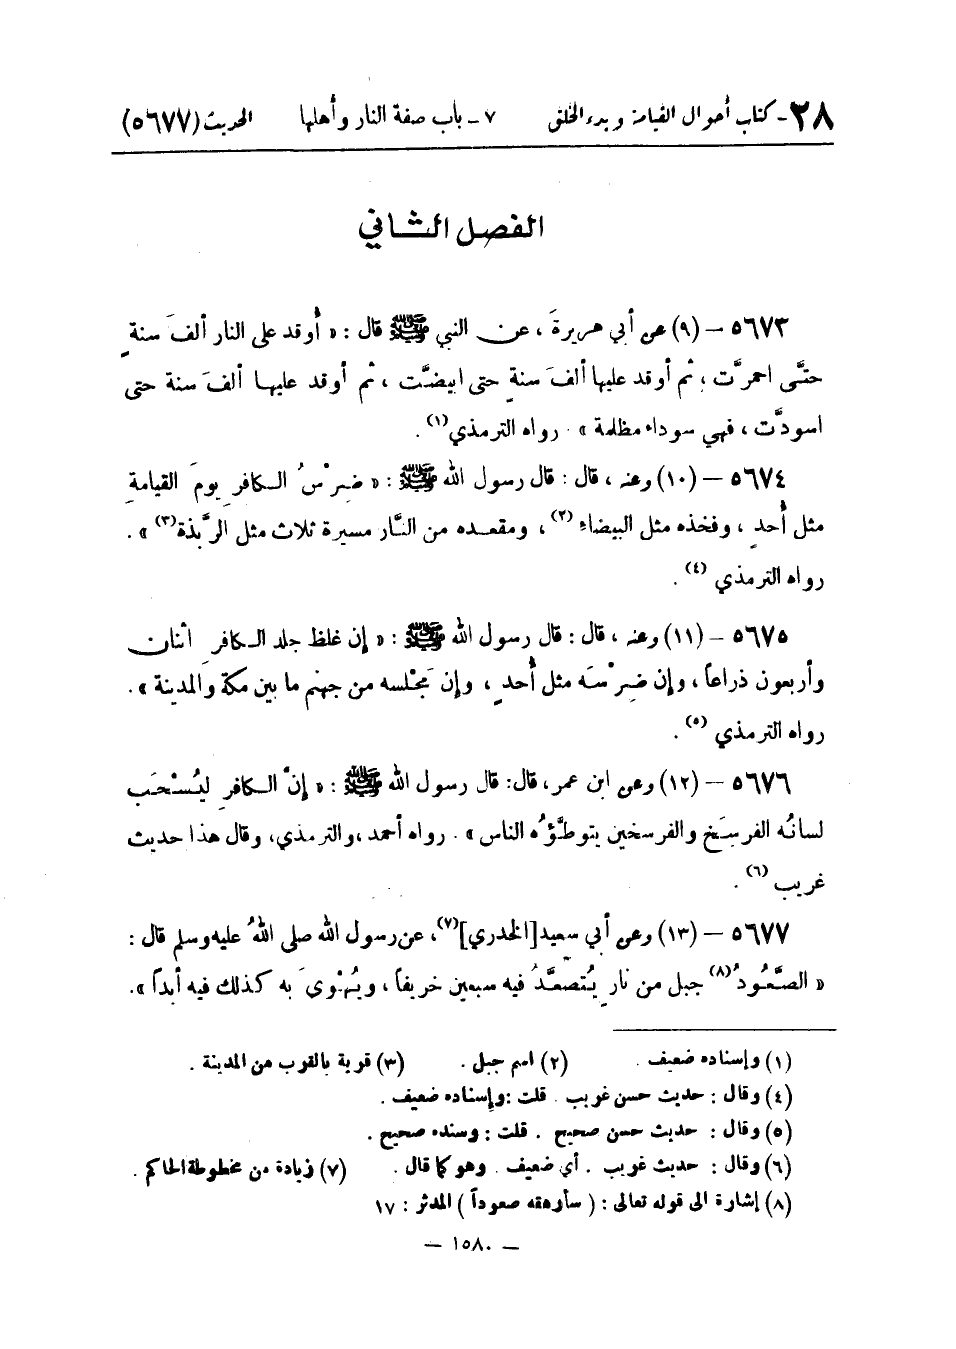 ٢٨- كتاب أحوال القيامة وبدء الخلق ٧ - باب صفة النار وأهلها الحديث (٥٦٧٧)
الفصل الثاني
٥٦٧٣ – (٩) عن أبي هريرةَ ، عن النبي ﷺ قال : « أُوقد على النار ألفَ سنةٍ
حتَّى احمرَّت ؛ ثم أوقد عليها ألفَ سنةٍ حتى ابيضَّت ، ثم أوقد عليها ألفَ سنة حتى
اسودَّت ، فهي سوداء مظلمة » . رواه الترمذي(١) .
٥٦٧٤ – (١٠) وعنه ، قال : قال رسول الله ﷺ : « ضِرْسُ الكافرِ يومَ القيامةِ
مثل أُحدٍ ، وفخذه مثل البيضاء (٢) ، ومقعده من النَّار مسيرة ثلاث مثل الرَّبذة(٣) » .
رواه الترمذي (٤) .
٥٦٧٥ – (١١) وعنه ، قال : قال رسول الله ﷺ : « إن غلظ جلد الكافرِ اثنان
وأربعون ذراعاً ، وإن ضِرْسَه مثل أُحدٍ ، وإن مَجْلسه من جهنم ما بين مكة والمدينة » .
رواه الترمذي (٥) .
٥٦٧٦ – (١٢) وعن ابن عمر، قال: قال رسول الله ﷺ : « إنَّ الكافرِ ليُسْحَب
لسانُه الفرسَخ والفرسخين يتوطَّؤُه الناس » . رواه أحمد ،والترمذي، وقال هذا حديث
غريب (٦) .
٥٦٧٧ – (١٣) وعن أبي سعيد[الخدري](٧)، عن رسول الله صلى اللهُ عليه وسلم قال :
« الصَّعُودُ(٨) جبل من نارٍ يُتصعَّدُ فيه سبعين خريفاً ، ويُهْوىَ به كذلك فيه أبداً » .
(١) وإسناده ضعيف . (٢) اسم جبل . (٣) قرية بالقرب من المدينة .
(٤) وقال : حديث حسن غريب . قلت : وإسناده ضعيف .
(٥) وقال : حديث حسن صحيح . قلت : وسنده صحيح .
(٦) وقال : حديث غريب . أي ضعيف . وهو كما قال . (٧) زيادة من مخطوطة الحاكم .
(٨) إشارة الى قوله تعالى : ( سأرهقه صعوداً ) المدثر : ١٧
— ١٥٨٠ —